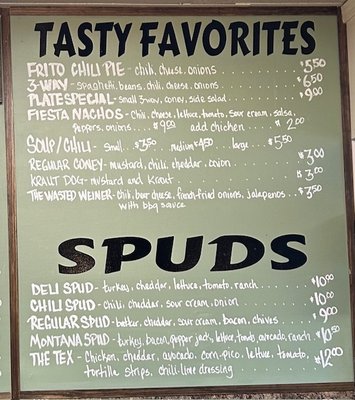 TASTY FAVORITES
FRITO CHILI PIE - chili, cheese, onions ........ $5.50
3-WAY - spaghetti, beans, chili, cheese, onions ........ $6.50
PLATE SPECIAL - small 3-way, coney, side salad ........ $9.00
FIESTA NACHOS - chili, cheese, lettuce, tomato, sour cream, salsa,
peppers, onions .... $9.00 add chicken .... $2.00
SOUP/CHILI - small .. $3.50 medium $4.50 ... large .. $5.50
REGULAR CONEY - mustard, chili, cheddar, onion ........ $3.00
KRAUT DOG - mustard and kraut ........ $3.00
THE WASTED WEINER - chili, beer cheese, french-fried onions, jalapenos ... $3.50
with bbq sauce
SPUDS
DELI SPUD - turkey, cheddar, lettuce, tomato, ranch ........ $10.00
CHILI SPUD - chili, cheddar, sour cream, onion ........ $10.00
REGULAR SPUD - butter, cheddar, sour cream, bacon, chives ........ $9.00
MONTANA SPUD - turkey, bacon, pepper jack, lettuce, tomato, avocado, ranch ... $10.50
THE TEX - Chicken, cheddar, avocado, corn-pico, lettuce, tomato, $12.00
tortilla strips, chili-lime dressing ........